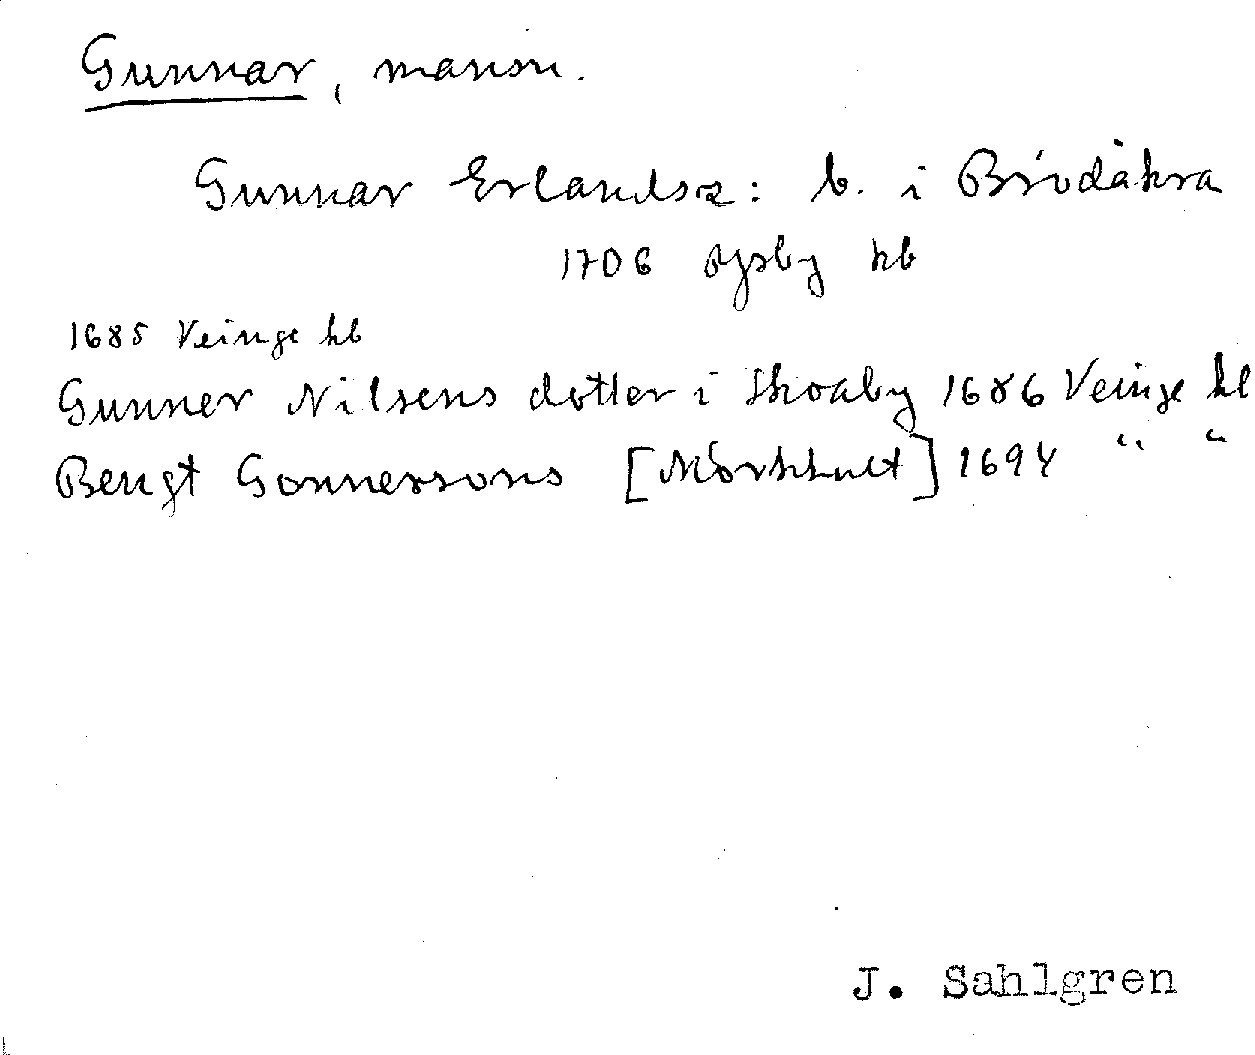 Gunnar, mansn.
Gunnar Erlandsz: b. i Brödåkra
1706 Ysby kb
1685 Veinge kb
Gunner Nilsens dotter i Skoaby 1686 Veinge kb
Bengt Gonnersons [Mörkhult] 1694 “ “
J. Sahlgren